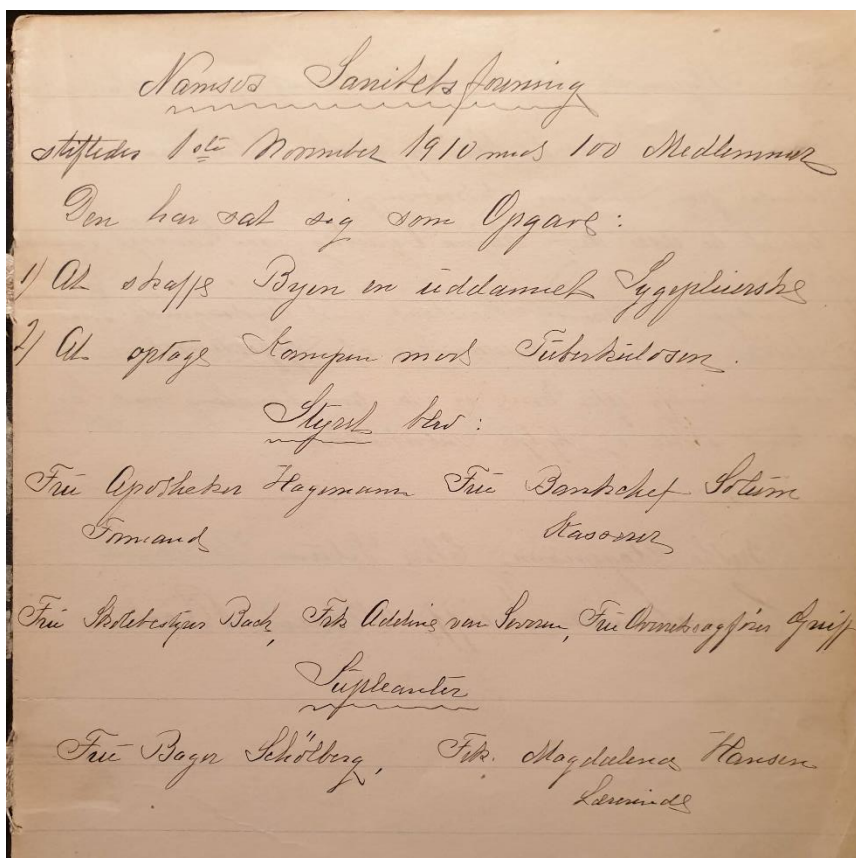 Namsos Sanitetsforening
stiftedes 1ste November 1910 med 100 Medlemmer
Den har sat sig som Opgave:
1) At skaffe Byen en uddannet Sygepleierske
2) At optage Kampen mod Tuberkulosen.
Styret blev:
Frue Apotheker Hagemann Frue Bankchef Solum
Formand Kasserer
Frue Skolebestyrer Bach, Frk Adeline van Severen, Frue Overretssagfører Greiff
Supleanter
Frue Bager Schölberg, Frk. Magdalena Hansen
Lærerinde